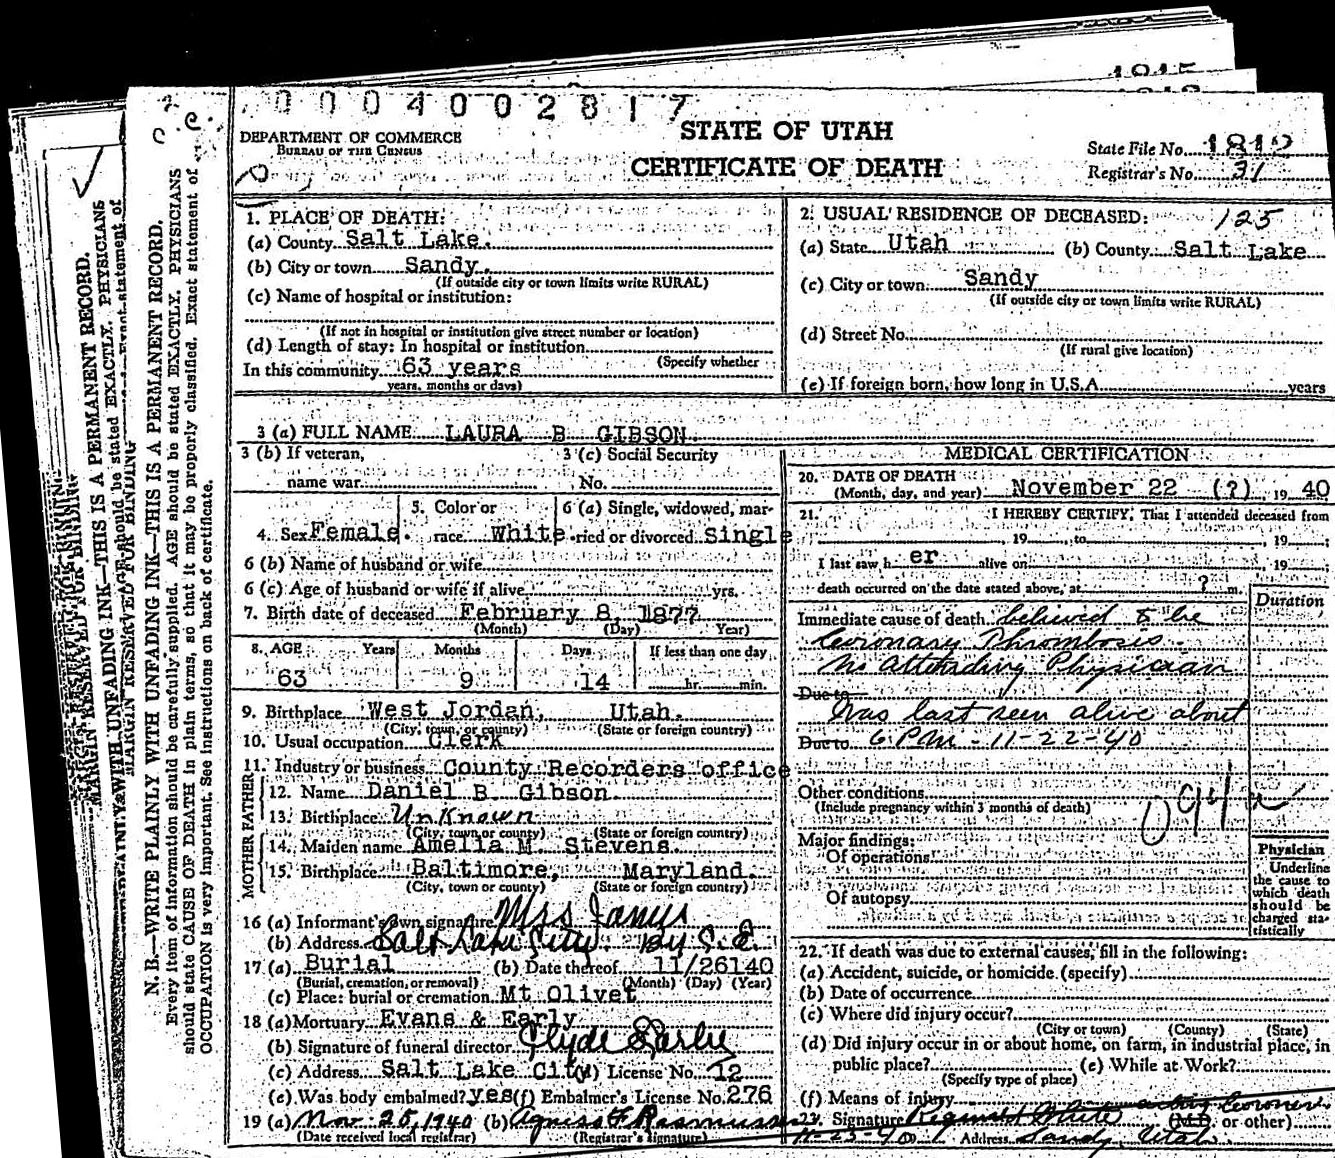 1815
0004002817
c. c.
DEPARTMENT OF COMMERCE
BUREAU OF THE CENSUS
STATE OF UTAH
CERTIFICATE OF DEATH
State File No. 1812
Registrar's No. 31
MARGIN RESERVED FOR BINDING
N. B.—WRITE PLAINLY WITH UNFADING INK—THIS IS A PERMANENT RECORD.
Every item of information should be carefully supplied. AGE should be stated EXACTLY. PHYSICIANS
should state CAUSE OF DEATH in plain terms, so that it may be properly classified. Exact statement of
OCCUPATION is very important. See instructions on back of certificate.
1. PLACE OF DEATH:
(a) County Salt Lake.
(b) City or town Sandy.
(If outside city or town limits write RURAL)
(c) Name of hospital or institution:
(If not in hospital or institution give street number or location)
(d) Length of stay: In hospital or institution
(Specify whether
In this community 63 years
years, months or days)
2. USUAL RESIDENCE OF DECEASED: 125
(a) State Utah (b) County Salt Lake
(c) City or town Sandy
(If outside city or town limits write RURAL)
(d) Street No.
(If rural give location)
(e) If foreign born, how long in U.S.A. years
3 (a) FULL NAME LAURA B GIBSON
3 (b) If veteran,
name war
3 (c) Social Security
No.
4. Sex Female.
5. Color or
race White
6 (a) Single, widowed, mar-
ried or divorced Single
6 (b) Name of husband or wife
6 (c) Age of husband or wife if alive yrs.
7. Birth date of deceased February 8, 1877
(Month) (Day) Year)
8. AGE Years Months Days If less than one day
63 9 14 hr. min.
9. Birthplace West Jordan, Utah.
(City, town, or county) (State or foreign country)
10. Usual occupation Clerk
11. Industry or business County Recorders office
FATHER
12. Name Daniel B. Gibson
13. Birthplace Unknown
(City, town or county) (State or foreign country)
MOTHER
14. Maiden name Amelia M. Stevens.
15. Birthplace Baltimore, Maryland.
(City, town or county) (State or foreign country)
16 (a) Informant's own signature Mrs
(b) Address Salt Lake City. By C. E.
17 (a) Burial (b) Date thereof 11/26140
(Burial, cremation, or removal) (Month) (Day) (Year)
(c) Place: burial or cremation Mt Olivet
18 (a) Mortuary Evans & Early
(b) Signature of funeral director Clyde Early
(c) Address Salt Lake City (d) License No. 12
(e) Was body embalmed? yes (f) Embalmer's License No. 276
19 (a) Nov. 25, 1940 (b) Agnes F Rasmussen
(Date received local registrar) (Registrar's signature)
MEDICAL CERTIFICATION
20. DATE OF DEATH
(Month, day, and year) November 22 (?) 19 40
21. I HEREBY CERTIFY, That I attended deceased from
19 , to , 19 ;
I last saw h er alive on , 19 ;
death occurred on the date stated above, at ? m.
Duration
Immediate cause of death believed to be
Coronary Thrombosis.
No attending Physician
Due to
Was last seen alive about
Due to 6 P.M. - 11-22-40
Other conditions
(Include pregnancy within 3 months of death)
Major findings:
Of operations
Of autopsy
Physician
Underline
the cause to
which death
should be
charged sta-
tistically
22. If death was due to external causes, fill in the following:
(a) Accident, suicide, or homicide (specify)
(b) Date of occurrence
(c) Where did injury occur?
(City or town) (County) (State)
(d) Did injury occur in or about home, on farm, in industrial place, in
public place? (e) While at Work?
(Specify type of place)
(f) Means of injury
23. Signature Reginald White acting Coroner
(M.D. or other)
11-23-40 Address Sandy, Utah.